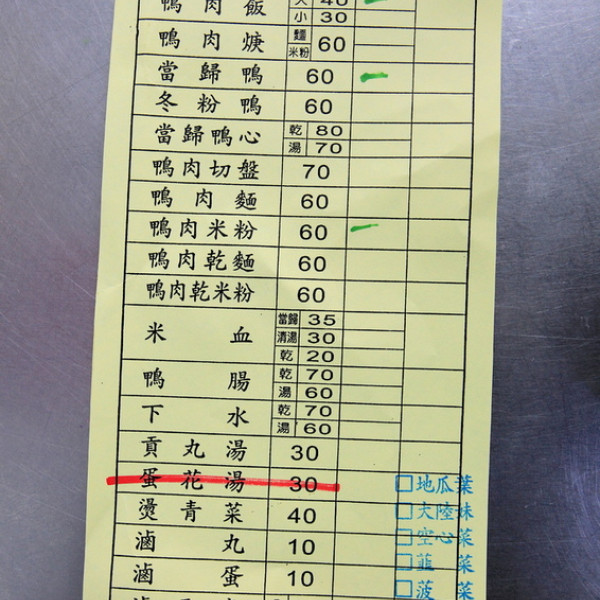 鴨肉飯 大 40
小 30
鴨肉焿 麵 米粉 60
當歸鴨 60
冬粉鴨 60
當歸鴨心 乾 80
湯 70
鴨肉切盤 70
鴨肉麵 60
鴨肉米粉 60
鴨肉乾麵 60
鴨肉乾米粉 60
米血 當歸 35
清湯 30
乾 20
鴨腸 乾 70
湯 60
下水 乾 70
湯 60
貢丸湯 30
蛋花湯 30
燙青菜 40
滷丸 10
滷蛋 10
□地瓜葉
□大陸妹
□空心菜
□韮菜
□菠菜